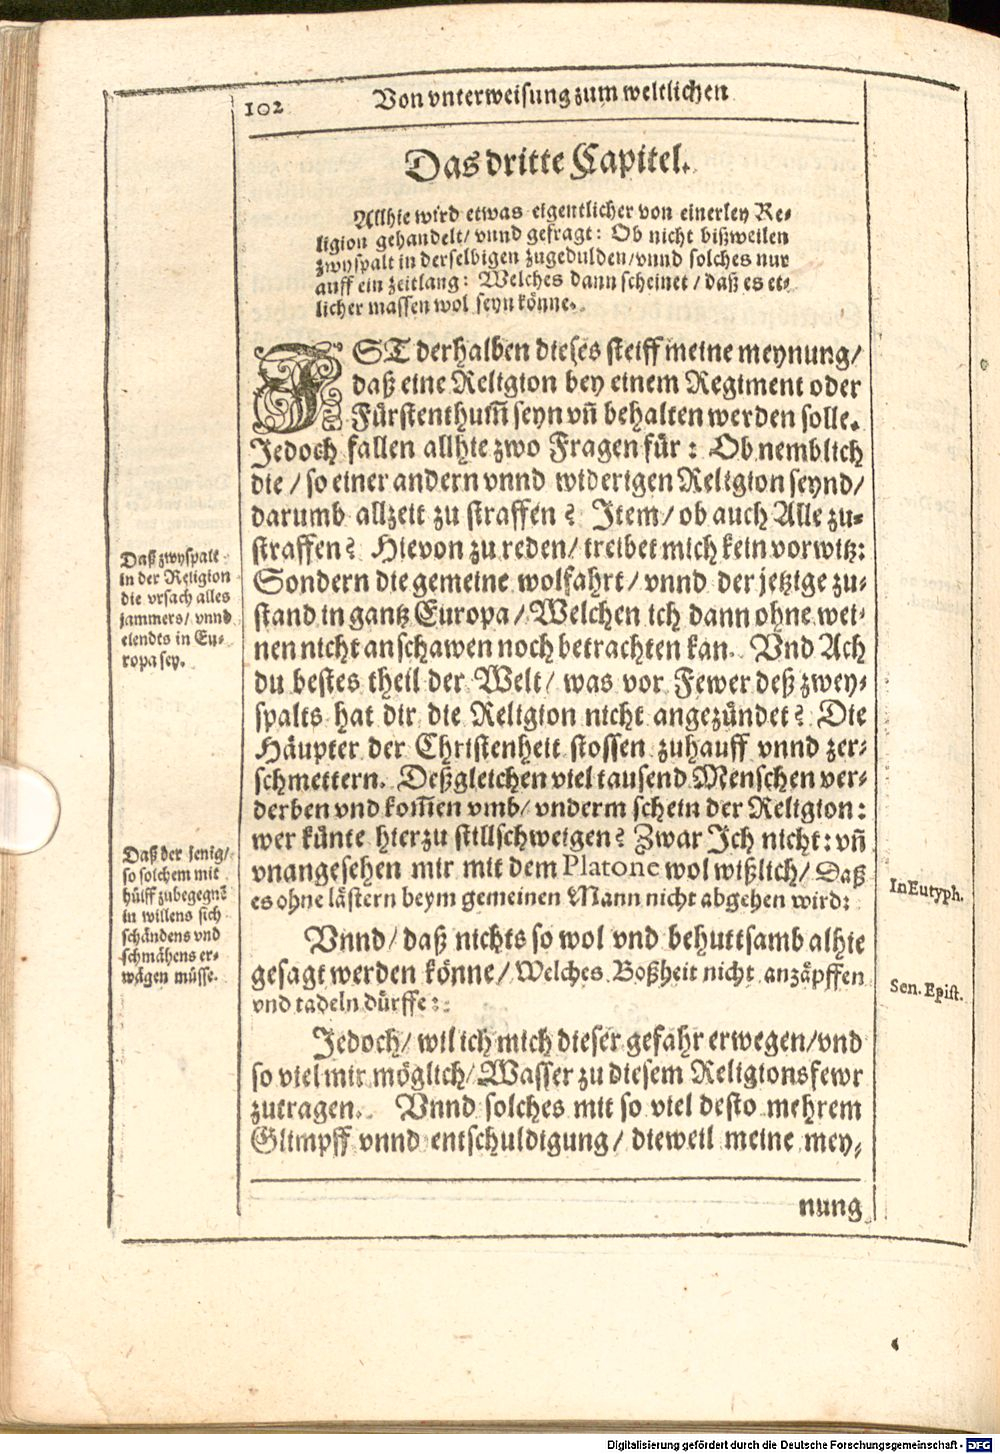 102
Von vnterweisung zum weltlichen
Das dritte Capitel.
Allhie wird etwas eigentlicher von einerley Re-
ligion gehandelt/ vnnd gefragt: Ob nicht bißweilen
zwyspalt in derselbigen zugedulden/vnnd solches nur
auff ein zeitlang: Welches dann scheinet/ daß es et-
licher massen wol seyn könne.
IST derhalben dieses steiff meine meynung/
daß eine Religion bey einem Regiment oder
Fürstenthum̃ seyn vñ behalten werden solle.
Jedoch fallen allhie zwo Fragen für: Ob nemblich
die/ so einer andern vnnd widerigen Religion seynd/
darumb allzeit zu straffen? Item/ ob auch Alle zu-
straffen? Hievon zu reden/ treibet mich kein vorwitz:
Sondern die gemeine wolfahrt/ vnnd der jetzige zu-
stand in gantz Europa/ Welchen ich dann ohne wei-
nen nicht anschawen noch betrachten kan. Vnd Ach
du bestes theil der Welt/ was vor Fewer deß zwey-
spalts hat dir die Religion nicht angezündet? Die
Häupter der Christenheit stossen zuhauff vnnd zer-
schmettern. Deßgleichen viel tausend Menschen ver-
derben vnd kom̃en vmb/ vnderm schein der Religion:
wer künte hierzu stillschweigen? Zwar Ich nicht: vñ
vnangesehen mir mit dem Platone wol wißlich/ Daß
es ohne lästern beym gemeinen Mann nicht abgehen wird:
Vnnd/ daß nichts so wol vnd behuttsamb alhie
gesagt werden könne/ Welches Boßheit nicht anzäpffen
vnd tadeln dürffe:
Jedoch/ wil ich mich dieser gefahr erwegen/vnd
so viel mir möglich/ Wasser zu diesem Religionsfewr
zutragen. Vnnd solches mit so viel desto mehrem
Glimpff vnnd entschuldigung/ dieweil meine mey-
nung
Daß zwyspalt
in der Religion
die vrsach alles
jammers/ vnnd
elendts in Eu-
ropa sey.
Daß der jenig/
so solchem mit
hülff zubegegnẽ
in willens sich
schändens vnd
schmähens er-
wägen müsse.
In Eutyph.
Sen. Epist.
Digitalisierung gefördert durch die Deutsche Forschungsgemeinschaft - DFG